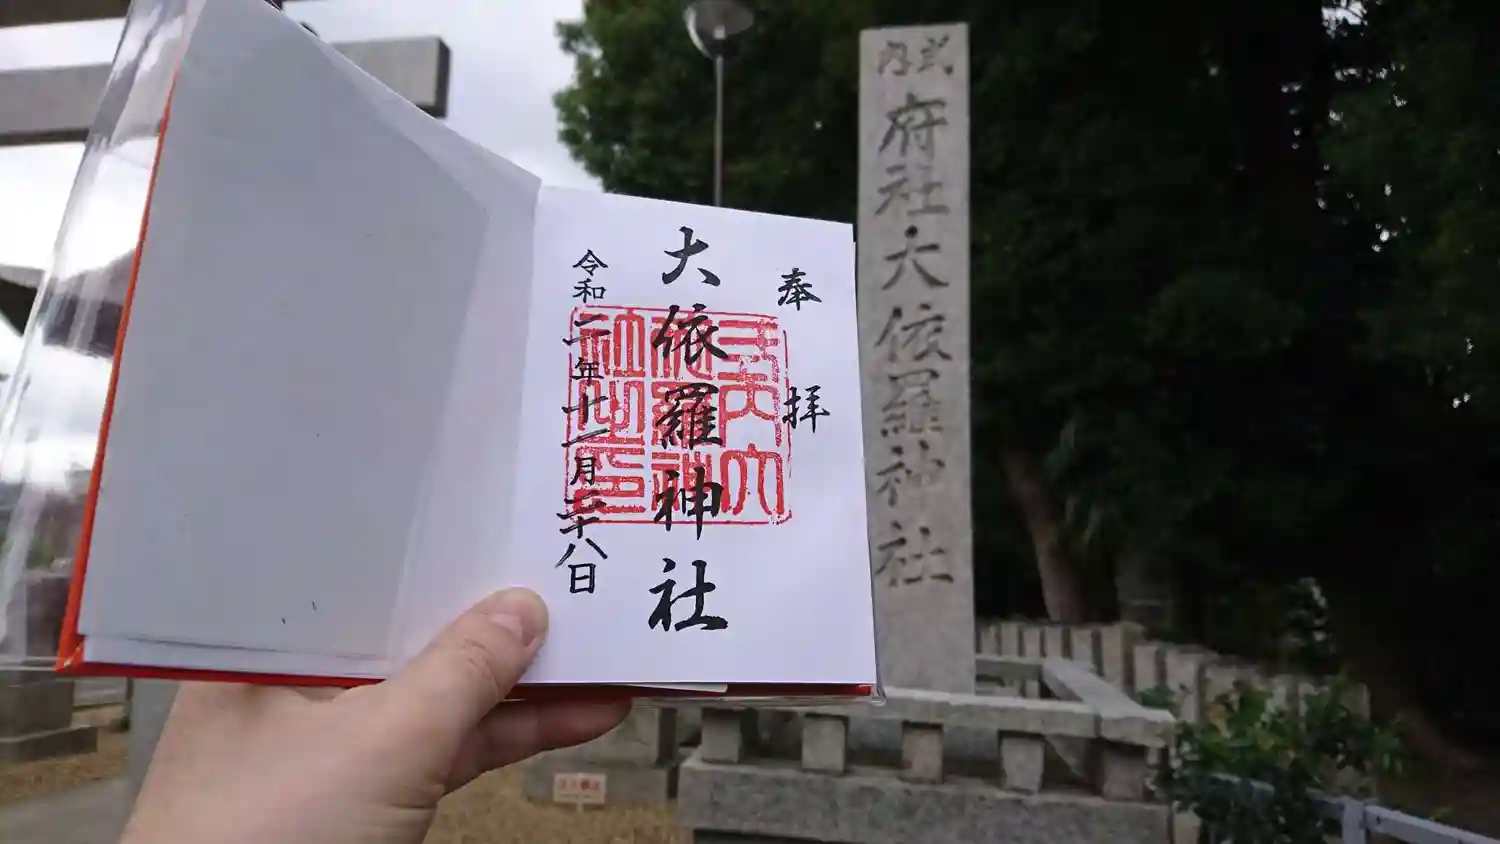 奉拝
大依羅神社
令和二年十一月二十八日
式内
府社大依羅神社